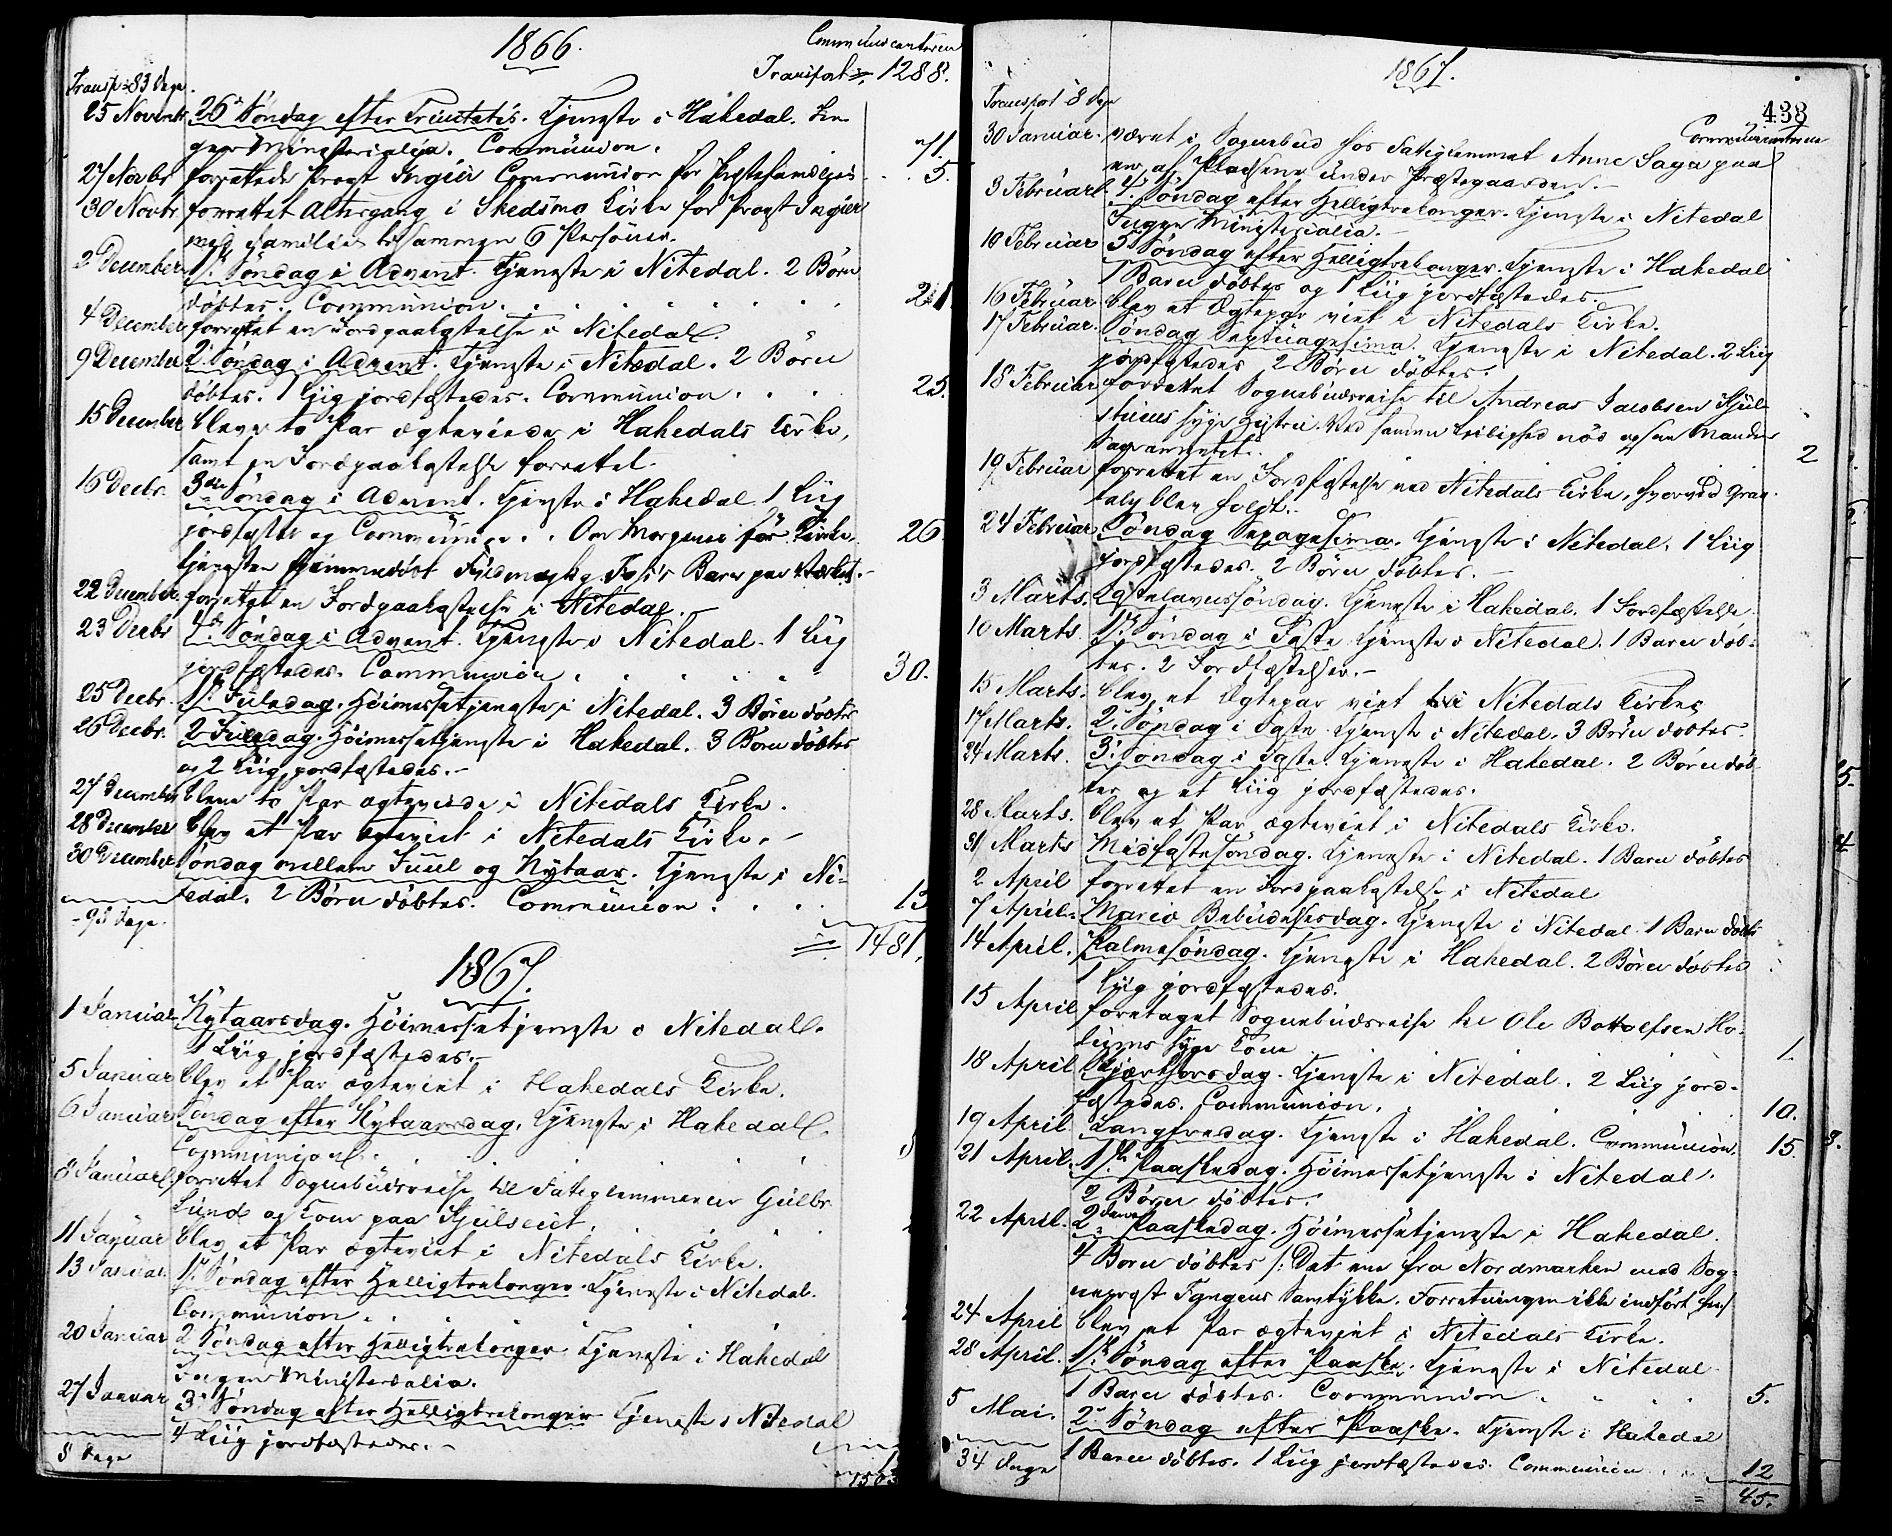 1866.
Communicantere
Transp. 83 Dage.
Transport = 1288.
25 Novembr 26de Söndag efter Trinitatis. Tjeneste i Hakedal. In-
gen Ministerialia. Communion. 71.
27 Novbr forrettede Provst Communion for 5.
30 Novbr. forrettet Altergang i Skedsmo Kirke for Provst
med Familie tilsammen 6 Personer.
2 December 1ste Söndag i Advent. Tjeneste i Nitedal. 2 Börn
döbtes. Communion. 21
4 December forrettet en Jordpaakastelse i Nitedal.
9 December 2. Söndag i Advent. Tjeneste i Nitedal. 2 Börn
döbtes. 1 Liig jordfæstedes. Communion. 25.
15 December bleve to Par ægteviede i Hakedals Kirke,
samt en Jordpaakastelse forrettet.
16 Decbr. 3die Söndag i Advent. Tjeneste i Hakedal. 1 Liig
jordfæstet og Communion. Om Morgenen för Kirke- 26.
tjenesten hjemmedöbt Barn paa Værket.
22 December. forrettet en Jordpaakastelse i Nitedal.
23 Decbr 4de Söndag i Advent. Tjeneste i Nitedal. 1 Liig
jordfæstedes. Communion. 30.
25 Decbr. 1ste Juledag. Höimessetjeneste i Nitedal. 3 Börn döbtes
26 Decbr. 2 Juledag. Höimessetjeneste i Hakedal. 3 Börn döbtes
og 2 Liig jordfæstedes.
27 December bleve to Par ægteviede i Nitedals Kirke.
28 December blev et Par ægteviet i Nitedals Kirke.
30 December Söndag mellem Juul og Nytaar. Tjeneste i Ni-
tedal. 2 Börn döbtes. Communion. 13
93 Dage.
= 1481.
1867.
1 Januar Nytaarsdag. Höimessetjeneste i Nitedal.
1 Liig jordfæstedes.
5 Januar blev et Par ægteviet i Hakedals Kirke.
6 Januar Söndag efter Nytaarsdag. Tjeneste i Hakedal.
Communion.
8 Januar forrettet Sognebudsreise til Fateglemmerne Gulbr.
Lund og Kone paa Kjulseiet.
11 Januar blev et Par ægteviet i Nitedals Kirke.
13 Januar. 1ste Söndag efter Helligtrekonger. Tjeneste i Nitedal.
Communion.
20 Januar 2 Söndag efter Helligtrekonger. Tjeneste i Hakedal
Ingen Ministerialia.
27 Januar 3. Söndag efter Helligtrekonger. Tjeneste i Nitedal
4 Liig jordfæstedes.
8 Dage
1867.
438
Transport 8 Dage
Communicantere
30 Januar. været i Sognebud hos Fateglemmet Anne Saga paa
en af Pladsene under Præstegaarden.
3 Februar. 4. Söndag efter Helligtrekonger. Tjeneste i Nitedal
Ingen Ministerialia.
10 Februar 5. Söndag efter Helligtrekonger. Tjeneste i Hakedal
1 Barn döbtes og 1 Liig jordfæstedes.
16 Februar blev et Ægtepar viet i Nitedals Kirke.
17 Februar. Söndag Septuagesima. Tjeneste i Nitedal. 2 Liig
jordfæstedes 2 Börn döbtes.
18 Februar forrettet Sognebudsreise til Andreas Jacobsen Kjul-
syge Hustru. Ved samme Leilighed nöd ogsaa Manden
Sacramentet. 2
19 Februar forrettet en Jordfæstelse ved Nitedals Kirke, hvorved Grav-
tale blev holdt.
24 Februar Söndag Sexagesima. Tjeneste i Nitedal. 1 Liig
jordfæstedes. 2 Börn döbtes.
3 Marts. Fastelavnssöndag. Tjeneste i Hakedal. 1 Jordfæstelse.
10 Marts. 1ste Söndag i Faste Tjeneste i Nitedal. 1 Barn döb-
tes. 2 Jordfæstelser.
15 Marts. blev et Ægtepar viet i Nitedals Kirke.
17 Marts. 2. Söndag i Faste. Tjeneste i Nitedal. 3 Börn döbtes.
24 Marts. 3. Söndag i Faste. Tjeneste i Hakedal. 2 Börn döb-
tes og et Liig jordfæstedes.
28 Marts. blev et Par ægteviet i Nitedals Kirke.
31 Marts Midfastesöndag. Tjeneste i Nitedal. 1 Barn döbtes
2 April forrettet en Jordpaakastelse i Nitedal
7 April. Mariæ Bebudelsesdag. Tjeneste i Nitedal 1 Barn döbt
14 April. Palmesöndag. Tjeneste i Hakedal. 2 Börn döbtes
1 Liig jordfæstedes.
15 April foretaget Sognebudsreise til Ole Bottolfsen Ho-
syge Kone 1
18 April Skjærthorsdag. Tjeneste i Nitedal. 2 Liig jord-
fæstedes. Communion. 10.
19 April Langfredag. Tjeneste i Hakedal. Communion. 15.
21 April. 1ste Paaskedag. Höimessetjeneste i Nitedal.
2 Börn döbtes.
22 April. 2den Paaskedag. Höimessetjeneste i Hakedal.
4 Börn döbtes /: Det ene fra Nordmarken med Sog-
nepræst Samtykke. Forretningen ikke indfört her/
24 April blev et Par ægteviet i Nitedals Kirke.
28 April. 1ste Söndag efter Paaske. Tjeneste i Nitedal
1 Barn döbtes. Communion 5.
5 Mai. 2. Söndag efter Paaske. Tjeneste i Hakedal
1 Barn döbtes. 1 Liig jordfæstedes. Communion 12
34 Dage = 45.